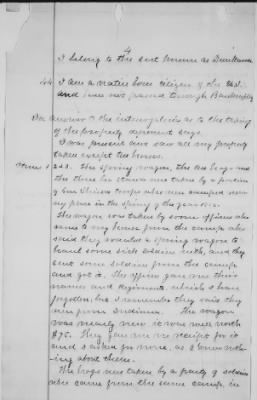 4
I belong to the sect known as Dunkard
44 I am a native born citizen of the U.S.
and have not passed through Bankruptcy
In answer to the interrogatories as to the taking
of the property deponent says.
I was present and saw all my property
taken except the horses.
Items The spring wagon, the hogs and
the three were taken by a portion
of Gen troops who were camped near
my place in the spring of the year
The wagon was taken by some officers who
came to my house from the camp who
said they wanted a spring wagon to
haul some sick soldiers with, and they
sent some soldiers from the camp
and got it. The officer gave me their
names and Regiment which I have
forgotten, but I remember they said they
were from Indiana. The wagon
was nearly new it was well worth
$75. They gave me no receipt for it
and I asked for none, as I knew noth-
ing about them.
The hogs were taken by a party of soldiers
who came from the same camp, in